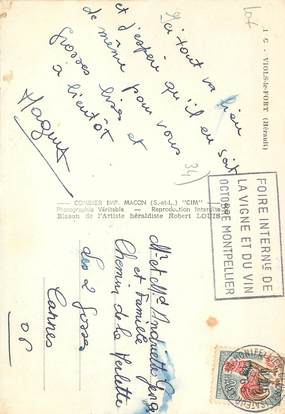 J C - VIOLS-le-FORT (Hérault)
Ici tout va bien
et j'espère qu'il en soit
de même pour vous
Grosses bises et
à bientôt
Maguy
34
COMBIER IMP. MACON (S.-et-L.) "CIM"
Photographie Véritable - Reproduction Interdite
Blason de l'Artiste héraldiste Robert LOUIS
FOIRE INTERNLE DE
LA VIGNE ET DU VIN
OCTOBRE MONTPELLIER
Mr et Md
et Famille
Chemin de la
des 2
Cannes
06